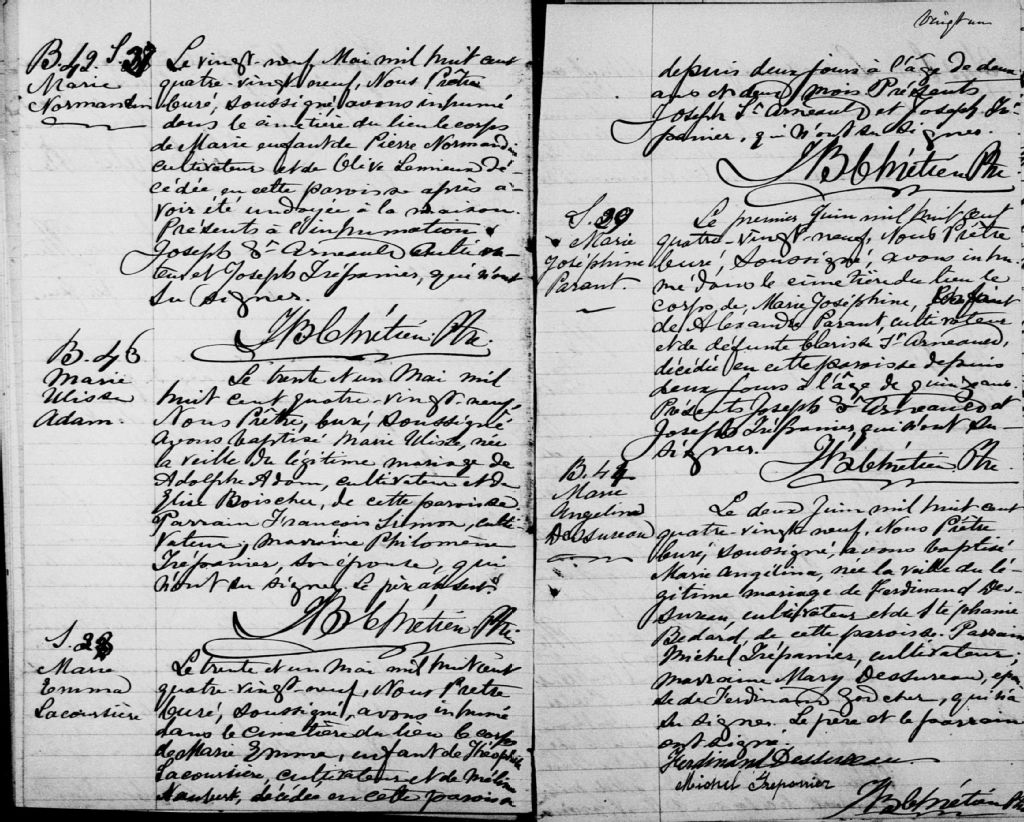 B. 42. S. 37
Marie
Normandin
Le vingt-neuf Mai mil huit cent
quatre-vingt-neuf, Nous Prêtre
Curé, soussigné, avons inhumé
dans le cimetière du lieu le corps
de Marie enfant de Pierre Normandin
cultivateur et de Olive Lemieux dé-
cédée en cette paroisse après a-
voir été ondoyée à la maison.
Présents à l'inhumation
Joseph St Arneault cultiva-
teur et Joseph Trépanier, qui n'ont
su signer.
JB Chrétien Ptre.
B. 43
Marie
Ulisse
Adam.
Le trente et un Mai mil
huit cent quatre-vingt-neuf,
Nous Prêtre, Curé, soussigné
avons baptisé Marie Ulisse, née
la veille du légitime mariage de
Adolphe Adam, cultivateur et de
Elise Boischer, de cette paroisse.
Parrain François Simon, culti-
vateur; marraine Philomène
Trépanier, son épouse, qui
n'ont su signer. Le père absent.
JB Chrétien Ptre
S. 38
Marie
Emma
Lacoursière
Le trente et un Mai mil huit cent
quatre-vingt-neuf, Nous Prêtre
Curé, soussigné, avons inhumé
dans le cimetière du lieu le corps
de Marie Emma, enfant de Théophile
Lacoursière, cultivateur et de Mélina
Naubert, décédée en cette paroisse
vingt un
depuis deux jours à l'âge de deux
ans et deux mois Présents
Joseph St Arneault et Joseph Tré-
panier, qui n'ont su signer.
JB Chrétien Ptre
S. 39
Marie
Joséphine
Parant.
Le premier Juin mil huit cent
quatre-vingt-neuf, Nous Prêtre
Curé, soussigné, avons inhu-
mé dans le cimetière du lieu le
corps de Marie Joséphine, enfant
de Alexandre Parant, cultivateur
et de défunte Clarisse St Arneault,
décédée en cette paroisse depuis
deux jours à l'âge de quinze ans.
Présents Joseph St Arneault et
Joseph Trépanier, qui n'ont su
signer.
JB Chrétien Ptre
B. 44
Marie
Angelina
Dessureau
Le deux Juin mil huit cent
quatre-vingt-neuf, Nous Prêtre
Curé, soussigné, avons baptisé
Marie Angélina, née la veille du lé-
gitime mariage de Ferdinand Des-
sureau, cultivateur et de Stéphanie
Bedard, de cette paroisse. Parrain
Michel Trépanier, cultivateur;
marraine Mary Dessureau, épou-
se de Ferdinand, qui n'a
su signer. Le père et le parrain
ont signé.
Ferdinand Dessureau
Michel Trepanier
JB Chrétien Ptre